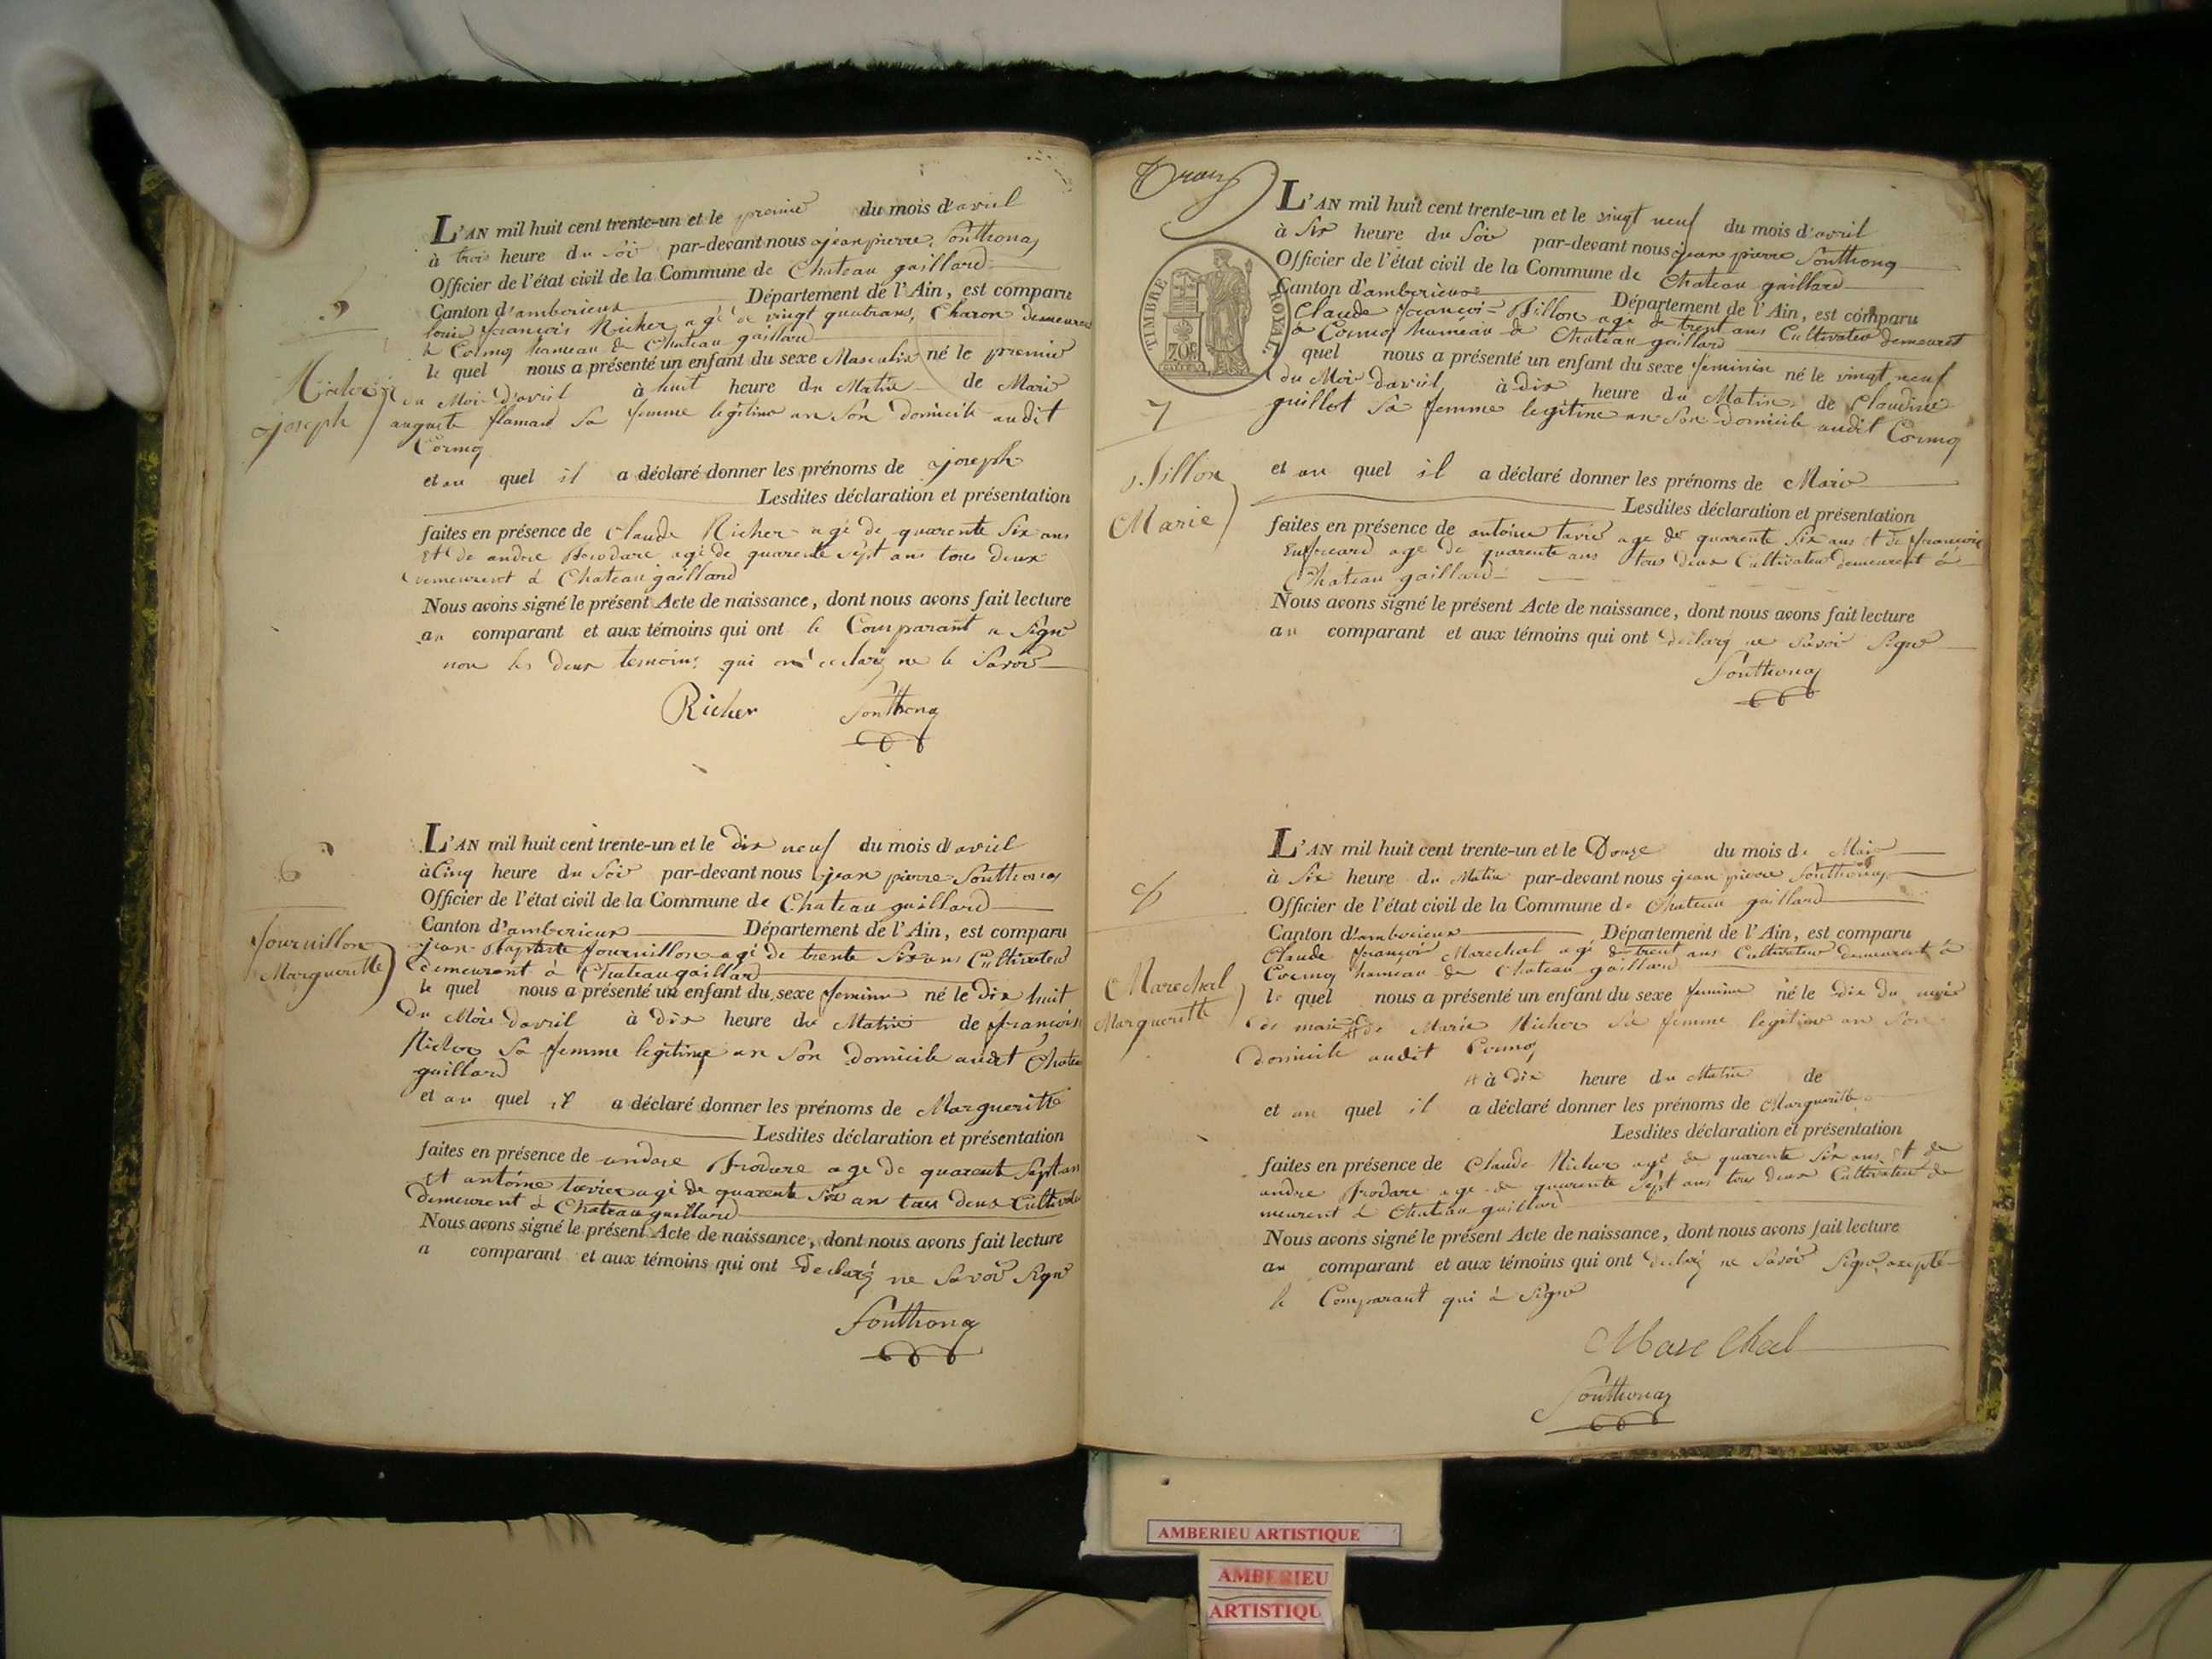 5
Richer
joseph
L'AN mil huit cent trente-un et le premier du mois d'avril
à trois heure du soir par-devant nous jean pierre Sonthonax
Officier de l'état civil de la Commune de Chateau gaillard
Canton d'amberieux Département de l'Ain, est comparu
louis françois Richer agé de vingt quatrans, Charon demeurent
à Cormoz hameau de Chateau gaillard
le quel nous a présenté un enfant du sexe Masculin né le premier
du Mois d'avril à huit heure du Matin de Marie
auguste flamand Sa femme legitime an Son domicile audit
Cormoz
et au quel il a déclaré donner les prénoms de joseph
Lesdites déclaration et présentation
faites en présence de Claude Richer agé de quarente Six ans
Et de andre Brodare agé de quarente sept ans tous deux
demeurent à Chateau gaillard
Nous avons signé le présent Acte de naissance, dont nous avons fait lecture
au comparant et aux témoins qui ont le Comparant a Signé
non les deux temoins qui on declaré ne le Savoir
Richer Sonthonax
6
fournillon
Margueritte
L'AN mil huit cent trente-un et le dix neuf du mois d'avril
à Cinq heure du Soir par-devant nous jean pierre Sonthonax
Officier de l'état civil de la Commune de Chateau gaillard
Canton d'amberieux Département de l'Ain, est comparu
jean Baptiste fournillon agé de trente Six ans Cultivateur
demeurent à Chateau gaillard
le quel nous a présenté un enfant du sexe feminin né le Dix huit
du Mois davril à Dix heure du Matin de françoise
Richer Sa femme legitime an Son Domicile audit Chateau
gaillard
et au quel il a déclaré donner les prénoms de Margueritte
Lesdites déclaration et présentation
faites en présence de andre Brodare age de quarent Sept an
et antoine tavier agé de quarente Six an tous deux Cultivateur
demeurent à Chateau gaillard
Nous avons signé le présent Acte de naissance, dont nous avons fait lecture
a comparant et aux témoins qui ont declaré ne Savoir Signé
Sonthonax
TIMBRE ROYAL
70 C
7
Billon
Marie
L'AN mil huit cent trente-un et le vingt neuf du mois d'avril
à Six heure du Soir par-devant nous jean pierre Sonthonax
Officier de l'état civil de la Commune de Chateau gaillard
Canton d'amberieux Département de l'Ain, est comparu
Claude françoi= Billon agé de trent ans Cultivateur demeurent
a Cormoz hameau de Chateau gaillard
quel nous a présenté un enfant du sexe feminin né le vingt neuf
du Mois davril à dix heure du Matin de Claudine
guillot Sa femme legitime an Son Domicile audit Cormoz
et au quel il a déclaré donner les prénoms de Marie
Lesdites déclaration et présentation
faites en présence de antoine tavier age de quarente Six ans et de françois
age de quarente ans tous deux Cultivateur demeurent à
Chateau gaillard
Nous avons signé le présent Acte de naissance, dont nous avons fait lecture
au comparant et aux témoins qui ont declaré ne Savoir Signé
Sonthonax
8
Marechal
Margueritte
L'AN mil huit cent trente-un et le Douze du mois de Mai
à Six heure du Matin par-devant nous jean pierre Sonthonax
Officier de l'état civil de la Commune de Chateau gaillard
Canton d'amberieux Département de l'Ain, est comparu
Claude françois Marechal agé de trent ans Cultivateur demeurent à
Cormoz hameau de Chateau gaillard
le quel nous a présenté un enfant du sexe feminin né le dix du mois
de mai # de Marie Richer Sa femme legitime an Son
domicile audit Cormoz
# à Dix heure du Matin de
et au quel il a déclaré donner les prénoms de Margueritte
Lesdites déclaration et présentation
faites en présence de Claude Richer agé de quarente Six ans et de
andre Brodare age de quarente sept ans tous deux Cultivateur de
meurent à Chateau gaillard
Nous avons signé le présent Acte de naissance, dont nous avons fait lecture
au comparant et aux témoins qui ont declaré ne Savoir Signé excepté
le Comparant qui à Signé
Marechal
Sonthonax
AMBERIEU ARTISTIQUE
AMBERIEU
ARTISTIQU